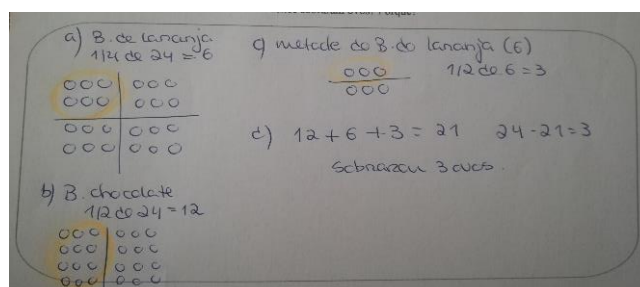 Porque?
a) B. de laranja
1/4 de 24 = 6
b) B. chocolate
1/2 de 24 = 12
c) metade do B. do laranja (6)
1/2 de 6 = 3
d) 12 + 6 + 3 = 21 24 - 21 = 3
Sobraram 3 ovos.